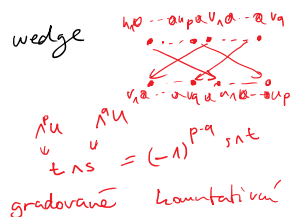 wedge
u₁∧ ... ∧u_p∧v₁∧ ... ∧v_q
v₁∧ ... ∧v_q∧u₁∧ ... ∧u_p
Λ^p U Λ^q U
t ∧ s = (-1)^{p-q} s∧t
gradované komutativní